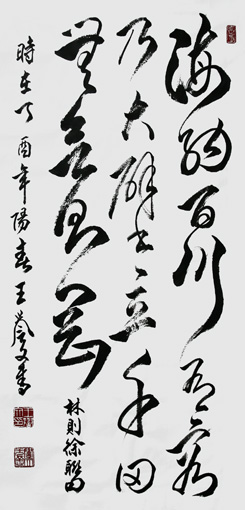 海納百川有容
乃大壁立千仞
無欲則剛
林則徐聯句
時在丁酉年陽春王書